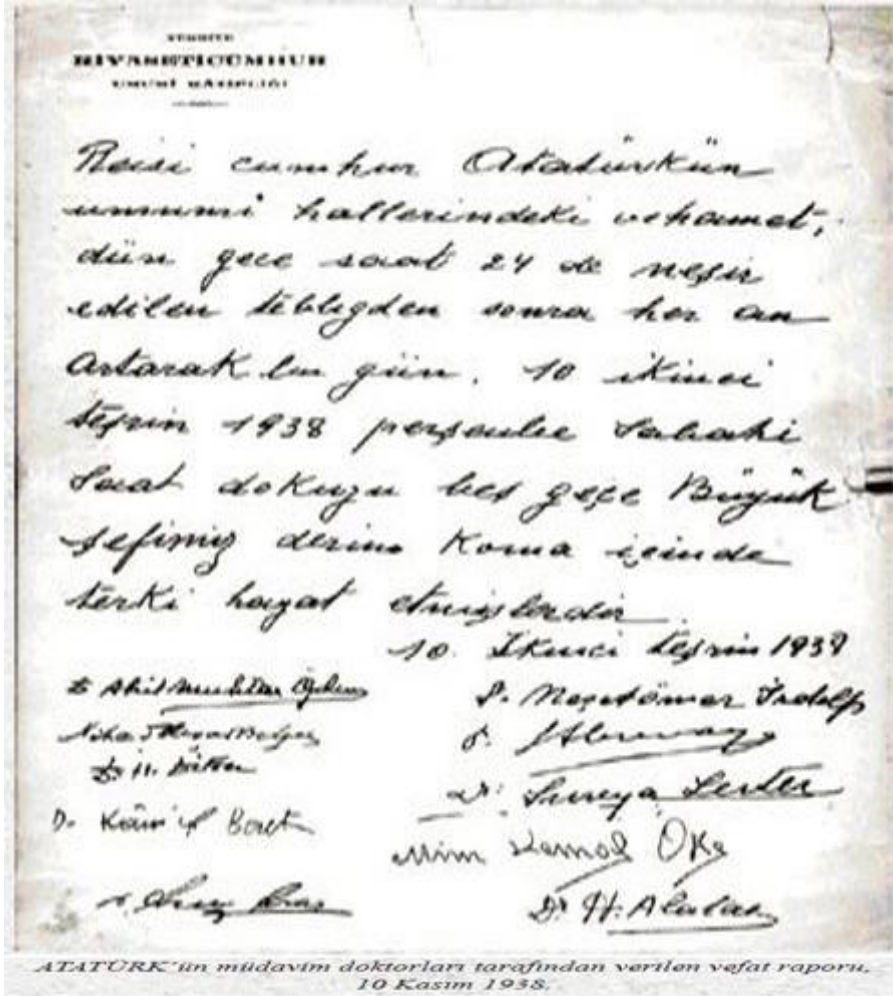 TÜRKİYE
RİYASETİCÜMHUR
UMUMÎ KÂTİPLİĞİ
Reisi cumhur Atatürkün
umumi hallerindeki vehamet,
dün gece saat 24 de neşir
edilen tebliğden sonra her an
artarak bu gün, 10 ikinci
teşrin 1938 perşembe sabahi
saat dokuzu beş geçe Büyük
şefimiz derin koma içinde
terki hayat etmişlerdir
10. İkinci teşrin 1938
Dr Akil Muhtar Özden
D. Neşetömer İrdelp
Dr. Süreya Serter
Mim Kemal Öke
Dr H. Alataş
ATATÜRK'ün müdavim doktorları tarafından verilen vefat raporu,
10 Kasım 1938.